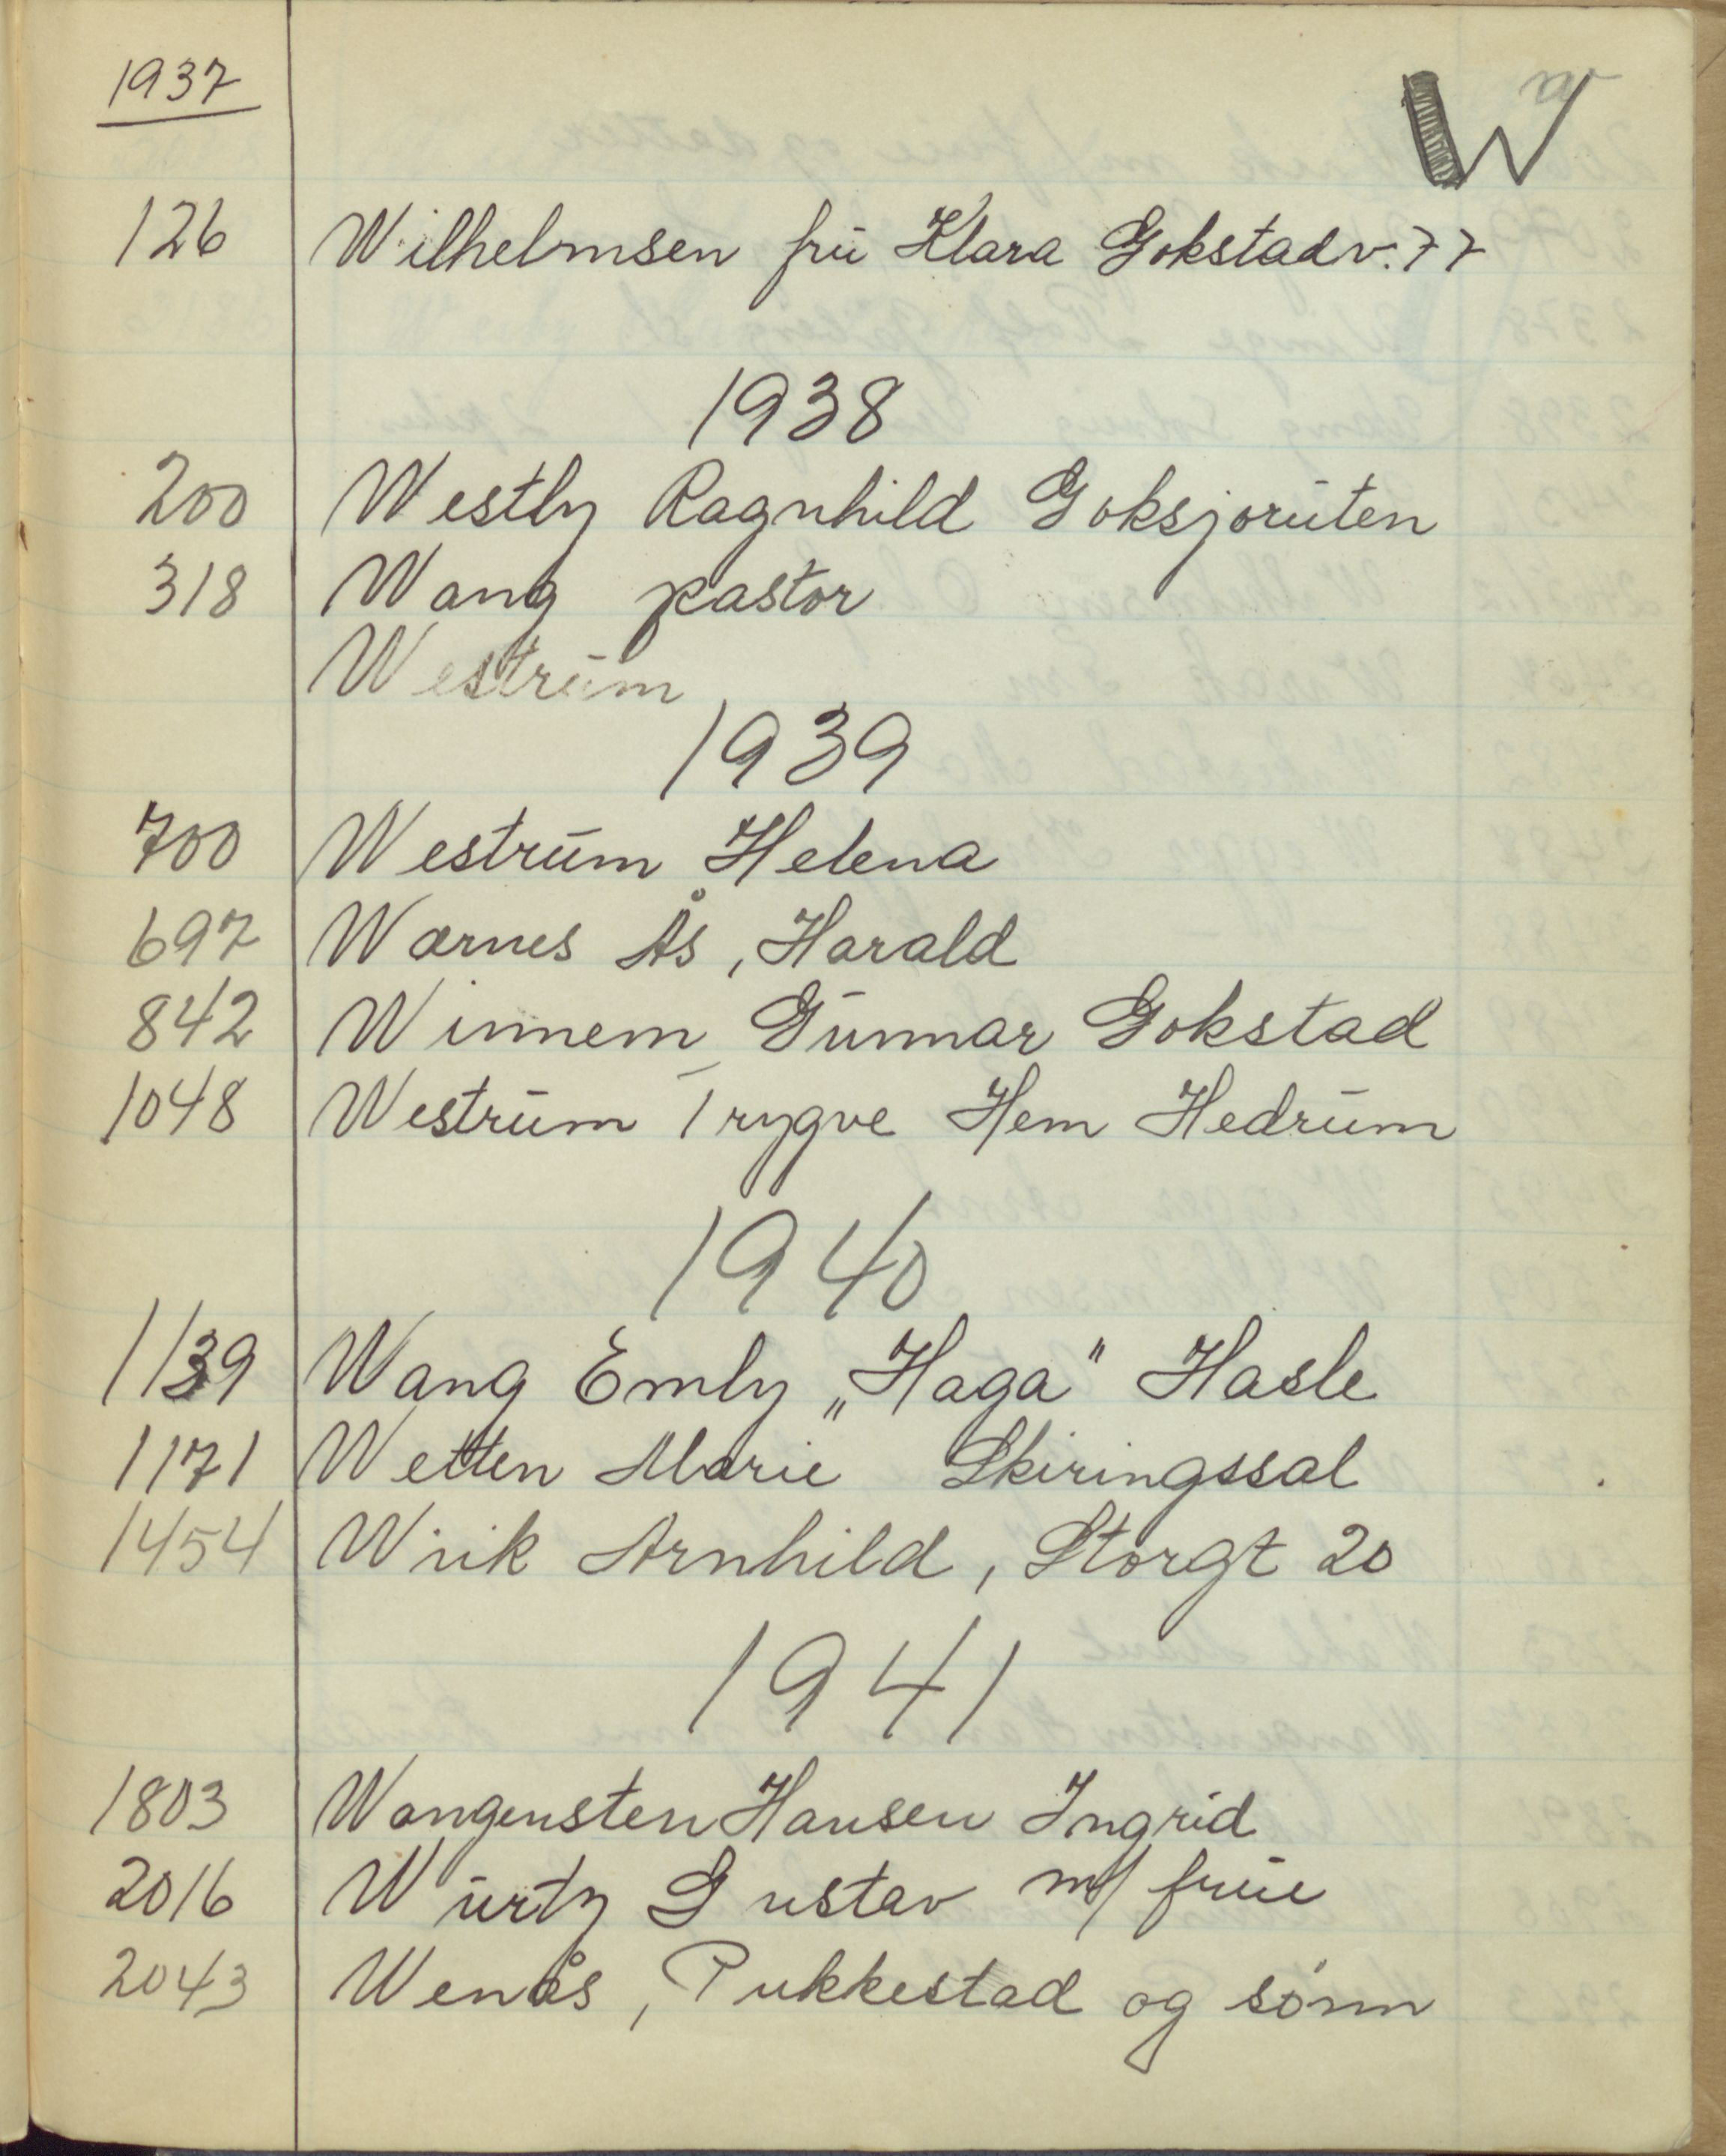 1937
W
126 Wilhelmsen frū Klara Gokstadv. 77
1938
200 Westly Ragnhild Goksjorūten
318 Wang pastor
Westrūm
1939
700 Westrūm Helena
697 Warnes Ås, Harald
842 Winnem Gūnnar Gokstad
1048 Westrūm Trygve Hem Hedrūm
1940
1139 Wang Emly „Haga" Hasle
1171 Wetten Marie Skiringssal
1454 Wiik Arnhild, Storgt 20
1941
1803 Wangensten Hansen Ingrid
2016 Wūrtz Gustav m/ frūe
2043 Wenås, Pukkestad og sónn